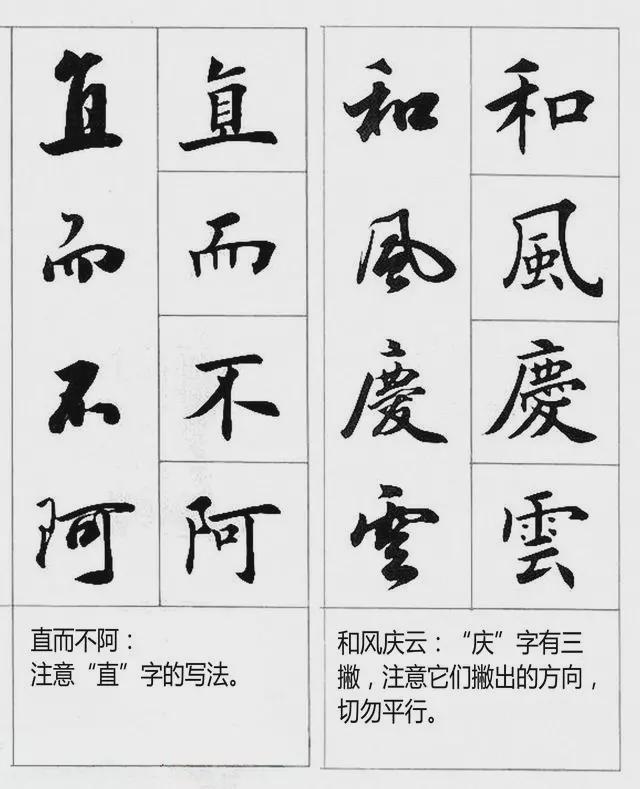 直而不阿
直而不阿
直而不阿：
注意“直”字的写法。
和風慶雲
和風慶雲
和风庆云：“庆”字有三
撇，注意它们撇出的方向，
切勿平行。